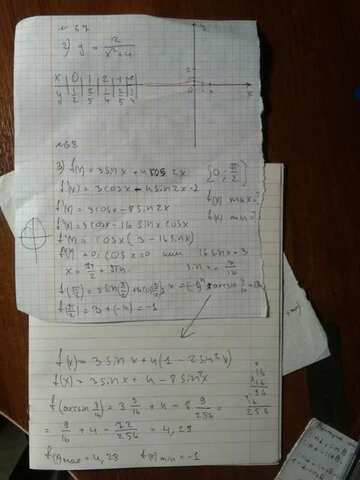 № 67
2) y = 2/(x²+4)
x | 0 | 1 | 2 | -1 | -2
y | 1/2 | 2/5 | 1/4 | 2/5 | 1/4
№68
3) f(x) = 3 sin x + 4 cos 2x [0; π/2]
f'(x) = 3cosx - 4 sin2x · 2 f(x) max = ?
f'(x) = 3cosx - 8 sin2x f(x) min = ?
f'(x) = 3cosx - 16 sinx cosx
f'(x) = cosx (3 - 16 sinx)
f'(x) = 0; cosx = 0 или 16 sinx = 3
x = π/2 + πn sinx = 3/16
f(π/2) = 3 + (-4) = -1
f(x) = 3 sin x + 4(1 - 2sin²x)
f(x) = 3 sin x + 4 - 8 sin²x
f(arcsin 3/16) = 3 · 3/16 + 4 - 8 · 9/256 =
= 9/16 + 4 - 72/256 = 4,28
16
16
96
16
256
f(x) max = 4,28 f(x) min = -1